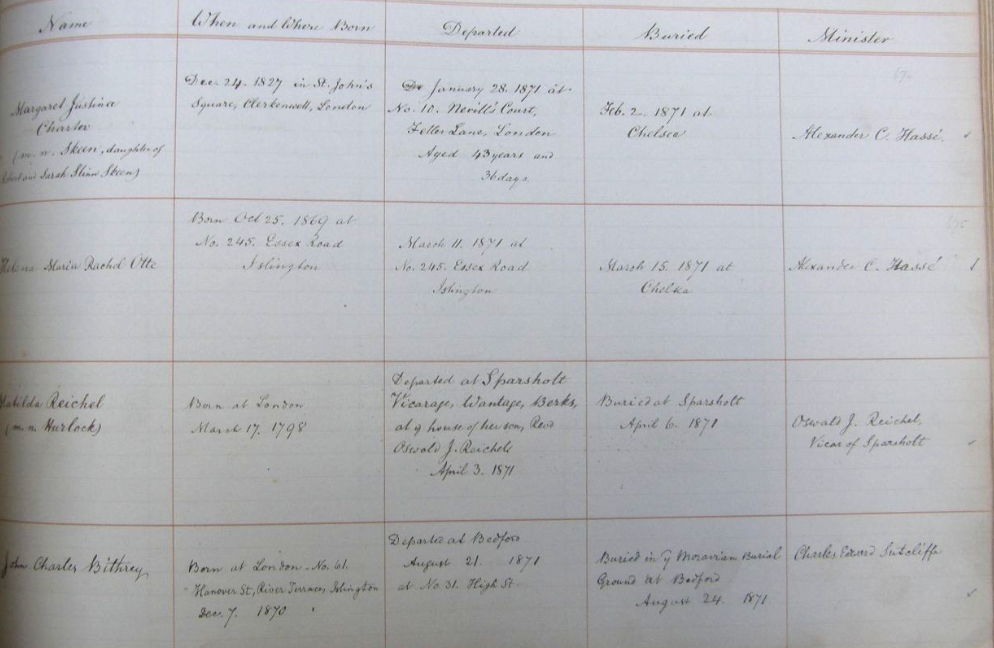 Name When and Where Born Departed Buried Minister
Margaret Justina
Charter
(m. n. Skeen, daughter of
Robert and Sarah Flinn Skeen)
Dec. 24. 1827 in St. John's
Square, Clerkenwell, London
January 28. 1871 at
No. 10. Nevill's Court,
Fetter Lane, London
Aged 43 years and
36 days.
Feb. 2. 1871 at
Chelsea
Alexander C. Hassé.
Helena Maria Rachel Otte
Born Oct 25. 1869 at
No. 245. Essex Road
Islington
March 11. 1871 at
No. 245. Essex Road
Islington
March 15. 1871 at
Chelsea
Alexander C. Hassé
Matilda Reichel
(m. n. Hurlock)
Born at London
March 17. 1798
Departed at Sparsholt
Vicarage, Wantage, Berks,
at y house of her son, Revd
Oswald J. Reichel
April 3. 1871
Buried at Sparsholt
April 6. 1871
Oswald J. Reichel,
Vicar of Sparsholt
John Charles Bithrey
Born at London. No. 61.
Hanover St, River Terrace, Islington
Dec. 7. 1870
Departed at Bedford
August 21. 1871
at No. 31. High St.
Buried in y Moravian Burial
Ground at Bedford
August 24. 1871
Charles Edward Sutcliffe